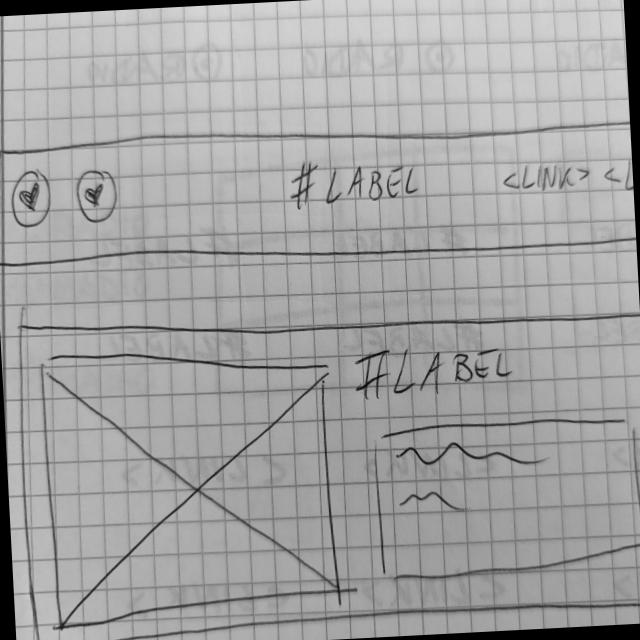 #LABEL <LINK> <L
#LABEL